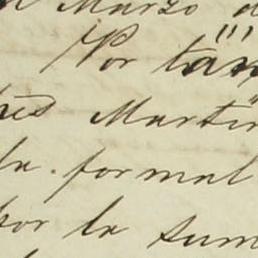 Marzo
Por tan
Martin
la formal
por la sum